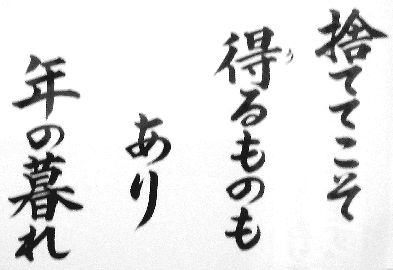 捨ててこそ
得るものも
あり
年の暮れ